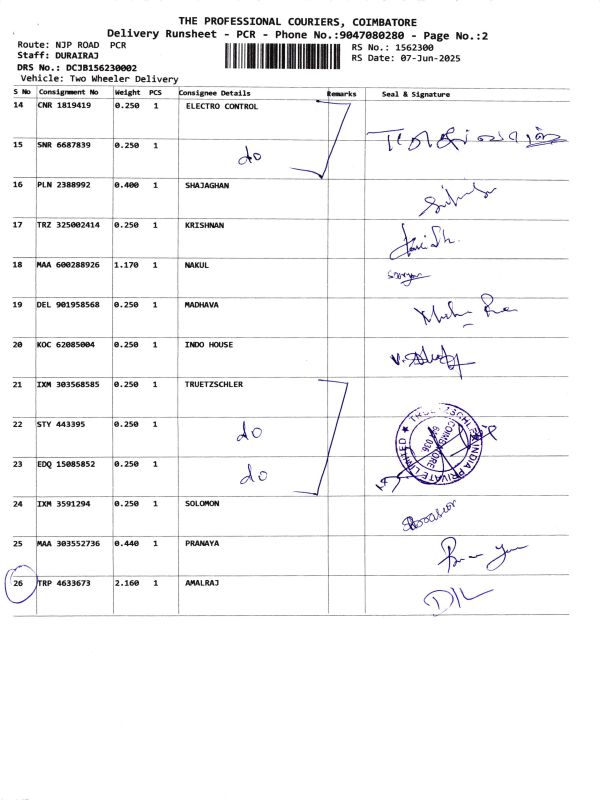 THE PROFESSIONAL COURIERS, COIMBATORE
Delivery Runsheet - PCR - Phone No.:9047080280 - Page No.:2
Route: NJP ROAD PCR
RS No.: 1562300
Staff: DURAIRAJ
RS Date: 07-Jun-2025
DRS No.: DCJB156230002
Vehicle: Two Wheeler Delivery
S No Consignment No Weight PCS Consignee Details Remarks Seal & Signature
14 CNR 1819419 0.250 1 ELECTRO CONTROL
15 SNR 6687839 0.250 1 do
16 PLN 2388992 0.400 1 SHAJAGHAN
17 TRZ 325002414 0.250 1 KRISHNAN
18 MAA 600288926 1.170 1 NAKUL
19 DEL 901958568 0.250 1 MADHAVA
20 KOC 62085004 0.250 1 INDO HOUSE
21 IXM 303568585 0.250 1 TRUETZSCHLER
22 STY 443395 0.250 1 do
23 EDQ 15085852 0.250 1 do
TRUETZSCHLER INDIA PRIVATE LIMITED
COIMBATORE
641 036
24 IXM 3591294 0.250 1 SOLOMON
25 MAA 303552736 0.440 1 PRANAYA
26 TRP 4633673 2.160 1 AMALRAJ